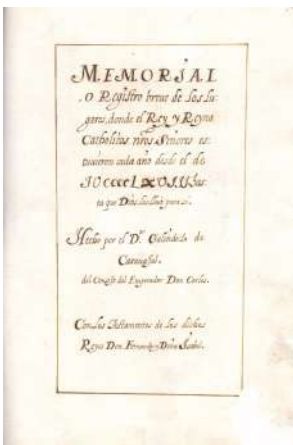 MEMORIAL
O Registro breue de los lu-
gares, donde el Rey y Reyna
Catholicos nros Señores es-
tuuieron cada año desde el de
has-
ta que Dios los lleuó para si.
Hecho por el D.or Galindez de
Carauajal.
del Consejo del Emperador Don Carlos.
Con los Testamentos de los dichos
Reyes Don Fernando y Doña Isabel.